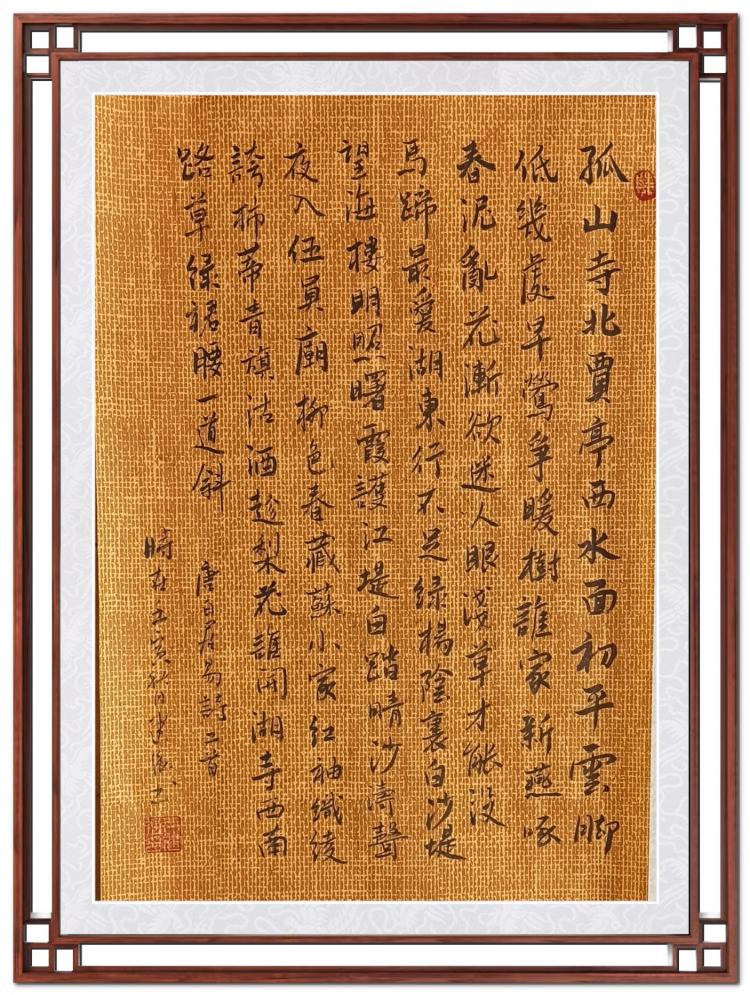 孤山寺北賈亭西水面初平雲脚
低幾處早鶯爭暖樹誰家新燕啄
春泥亂花漸欲迷人眼淺草才能沒
馬蹄最愛湖東行不足綠楊陰裏白沙堤
望海樓明照曙霞護江堤白踏晴沙濤聲
夜入伍員廟柳色春藏蘇小家紅袖織綾
誇柿蒂青旗沽酒趁梨花誰開湖寺西南
路草綠裙腰一道斜
唐白居易詩二首
時在亥秋月